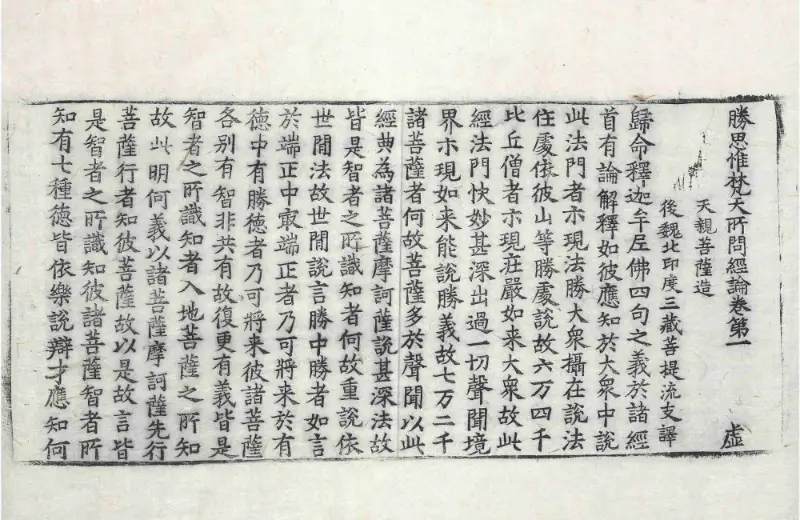 勝思惟梵天所問經論卷第一 虛
天親菩薩造
後魏北印度三藏菩提流支譯
歸命釋迦牟尼佛四句之義於諸經
首有論解釋如彼應知於大衆中說
此法門者示現法勝大衆攝在說法
住處住彼山等勝處說故六万四千
比丘僧者示現莊嚴如来大衆故此
經法門快妙甚深出過一切聲聞境
界示現如来能說勝義故七万二千
諸菩薩者何故菩薩多於聲聞以此
經典為諸菩薩摩訶薩說甚深法故
皆是智者之所識知者何故重說依
世間法故世間說言勝中勝者如言
於端正中冣端正者乃可將来於有
德中有勝德者乃可將来彼諸菩薩
各別有智非共有故復更有義皆是
智者之所識知者入地菩薩之所知
故此明何義以諸菩薩摩訶薩先行
菩薩行者知彼菩薩故以是故言皆
是智者之所識知彼諸菩薩智者所
知有七種德皆依樂說辯才應知何